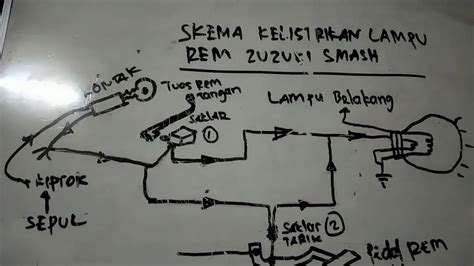 SKEMA KELISTRIKAN LAMPU
REM ZUZUKI SMASH
KONTAK
Tuas Rem
tangan
Saklar
1
Lampu Belakang
Kiprok
SEPUL
Saklar 2
TARIK
REM